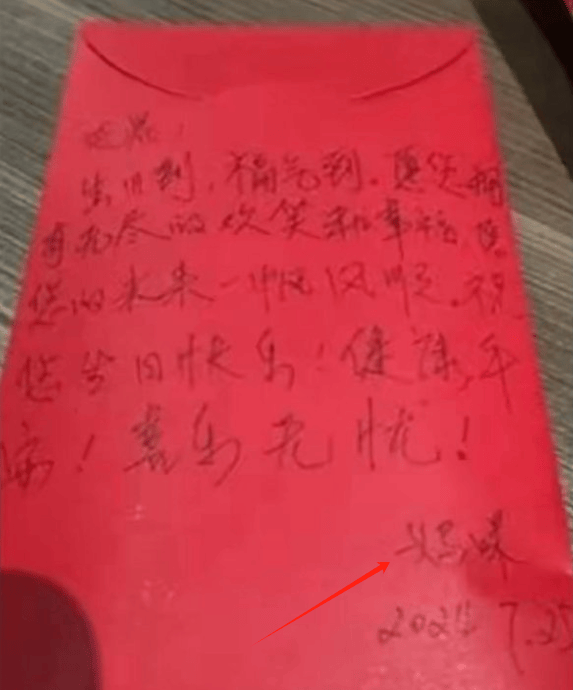 生日到,福气到。愿您拥
有无尽的欢笑和幸福,愿
您的未来一帆风顺。祝
您生日快乐!健康平
安!喜乐无忧!
2024 7.25